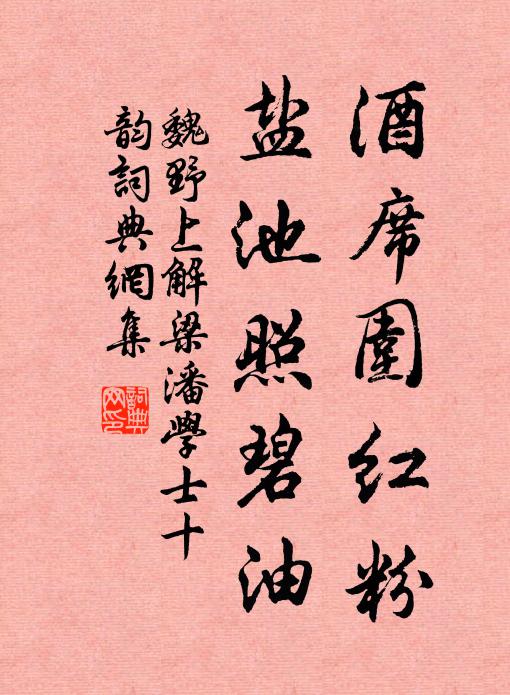 酒席圍红粉
盐池照碧油
魏野上解梁潘學士十
韵詞典網集
詞典網印